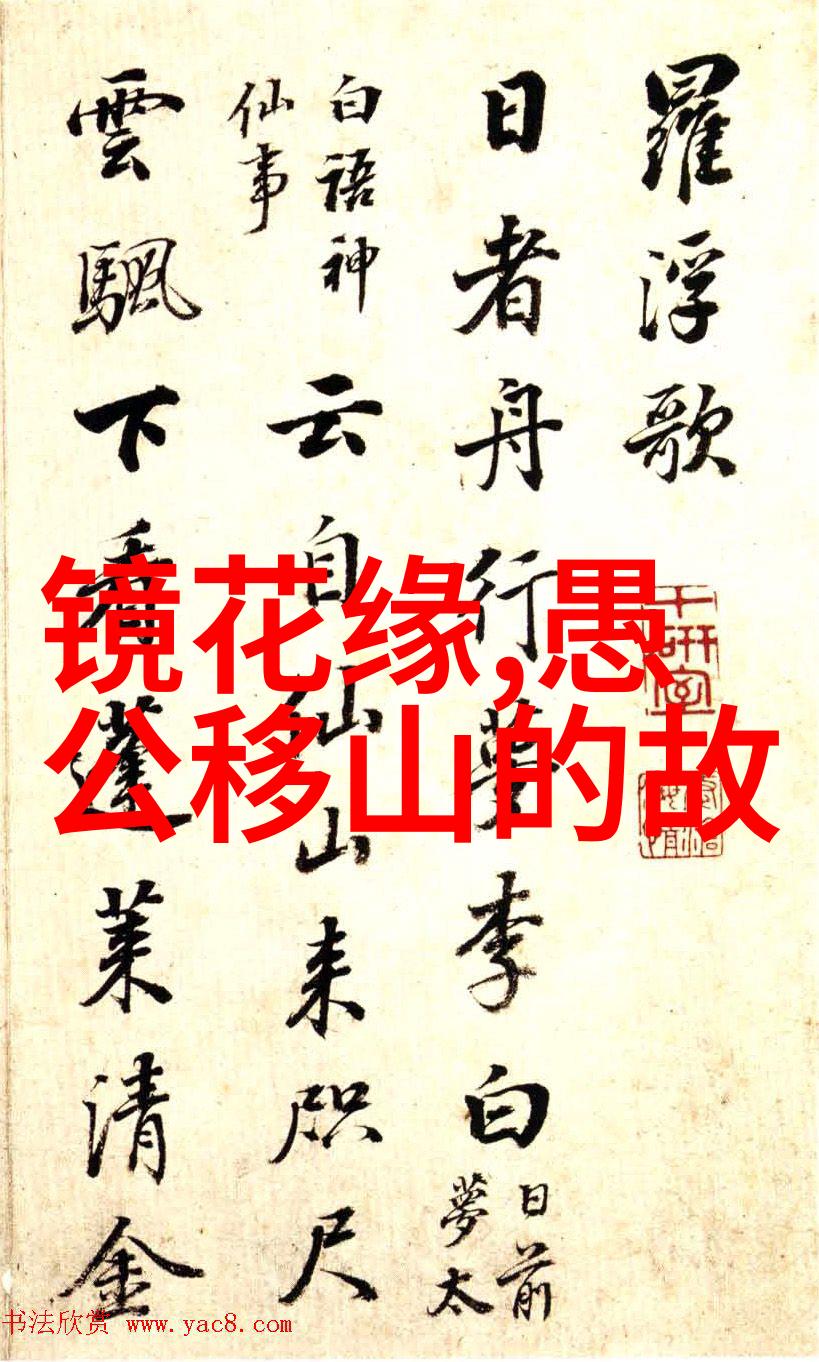 羅浮歌
日者舟行夢李白
日前
夢太
白語神
仙事
云自仙山来咫尺
雲颿下看蓬莱清金
镜花缘,愚
公移山的故
书法欣赏 www.yac8.com